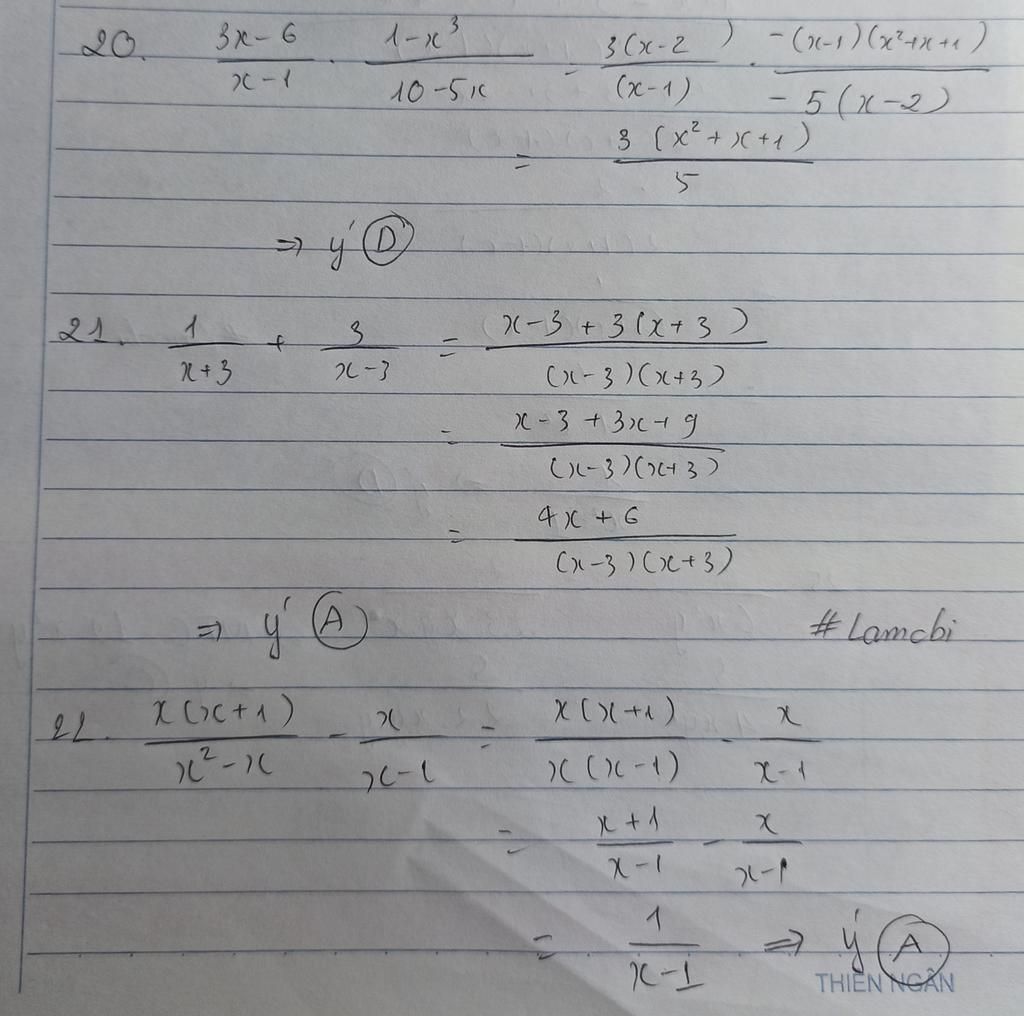 20. (3x-6)/(x-1) . (1-x³)/(10-5x) = 3(x-2)/(x-1) . -(x-1)(x²+x+1)/-5(x-2)
= 3(x²+x+1)/5
⇒ ý D
21. 1/(x+3) + 3/(x-3) = (x-3+3(x+3))/((x-3)(x+3))
= (x-3+3x+9)/((x-3)(x+3))
= (4x+6)/((x-3)(x+3))
⇒ ý A #Lamcbi
22. x(x+1)/(x²-x) - x/(x-1) = x(x+1)/(x(x-1)) - x/(x-1)
= (x+1)/(x-1) - x/(x-1)
= 1/(x-1) ⇒ ý A
THIEN NGÂN